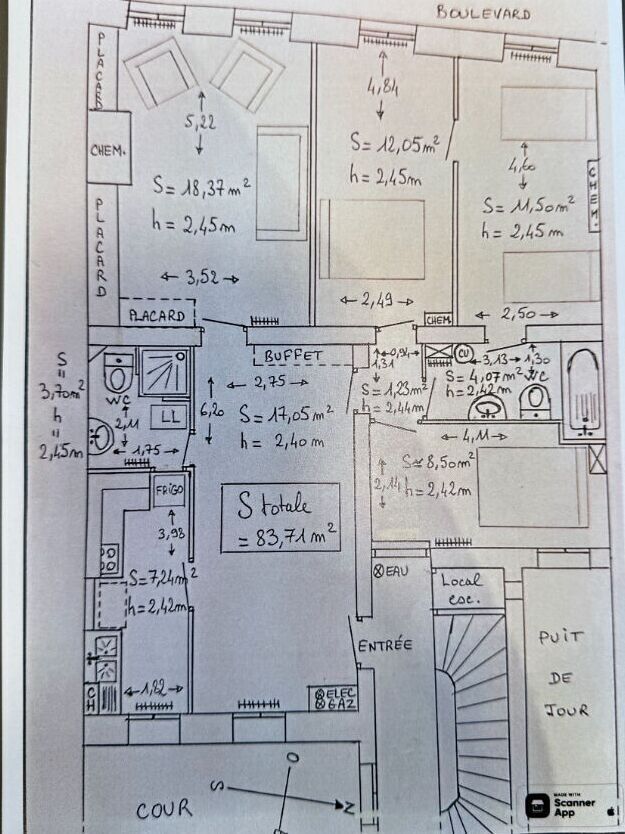 BOULEVARD
PLACARD
CHEM.
PLACARD
5,22
S= 18,37m²
h = 2,45m
3,52
PLACARD
4,84
S= 12,05m²
h = 2,45m
2,49
CHEM.
4,60
S= 11,50m²
h = 2,45m
2,50
CHEM.
S
=
3,70m²
h
=
2,45m
WC
2,11
LL
1,75
BUFFET
2,75
6,20
S= 17,05m²
h = 2,40m
0,94
1,31
S= 1,23m²
h= 2,44m
CU
3,13
1,30
S= 4,07m²
h= 2,42m
WC
4,11
S= 8,50m²
h= 2,42m
2,14
FRIGO
3,93
S= 7,24m²
h= 2,42m
1,82
CH
S totale
= 83,71m²
EAU
Local
esc.
ENTRÉE
PUIT
DE
JOUR
ELEC
GAZ
COUR
S
O
N
MADE WITH
Scanner
App